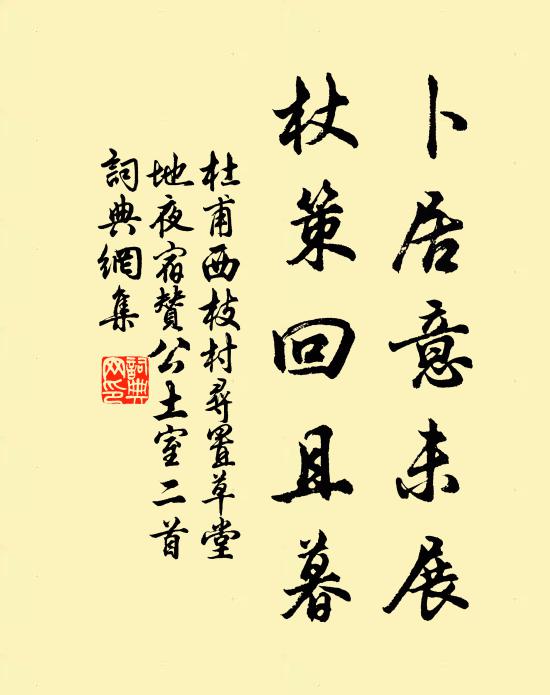 卜居意未展
杖策回且暮
杜甫西枝村尋置草堂
地夜宿贊公土室二首
詞典網集
詞典網印